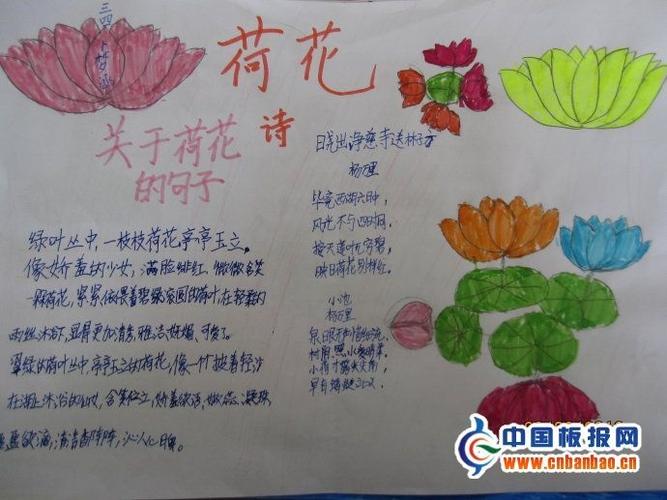 荷花
诗
关于荷花
的句子
绿叶丛中,一枝枝荷花亭亭玉立,
像娇羞的少女,满脸绯红,微微含笑
一颗荷花,紧紧依偎着碧绿滚圆的荷叶,在轻柔的
雨丝沐浴下,显得更加清秀,雅洁,妩媚、可爱了。
翠绿的荷叶丛中,亭亭玉立的荷花,像一个披着轻沙
在湖上沐浴的仙女,含笑伫立,娇羞欲语,嫩蕊凝珠
盈盈欲滴,清香阵阵,沁人心脾。
晓出净慈寺送林子方
杨万里
毕竟西湖六月中,
风光不与四时同,
接天莲叶无穷碧,
映日荷花别样红
小池
杨万里
泉眼无声惜细流,
小荷才露尖尖角,
早有蜻蜓立上
中国板报网
www.cnbanbao.cn